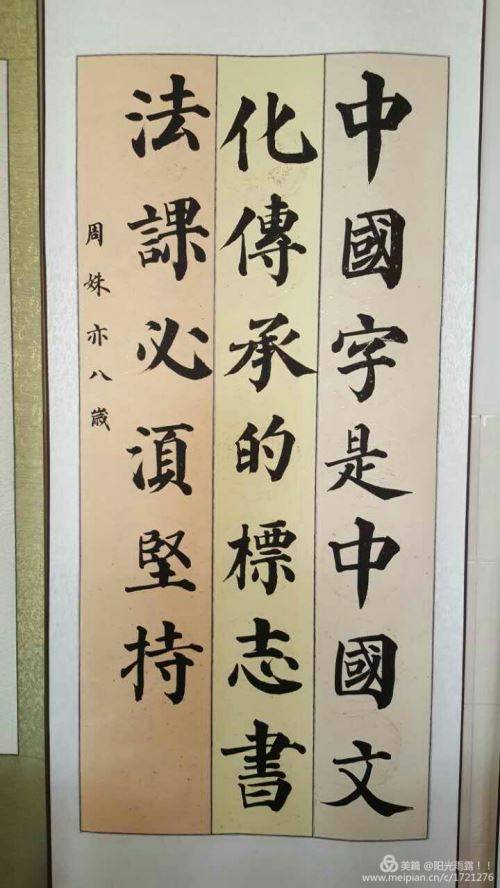 中國字是中國文
化傳承的標志書
法課必湏堅持
周姝亦八歲
美篇 @阳光雨露！！
www.meipian.cn/c/1721276